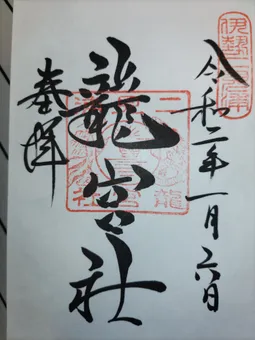 伊勢二見浦
令和二年一月六日
龍宮社
奉拝